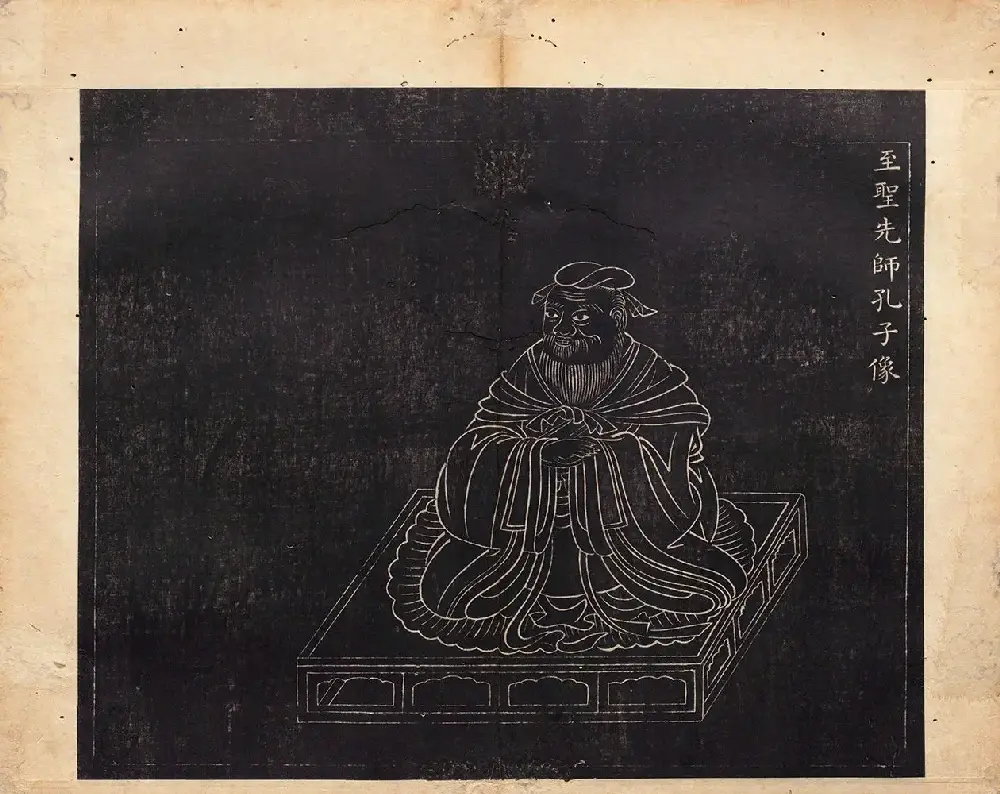 至聖先師孔子像